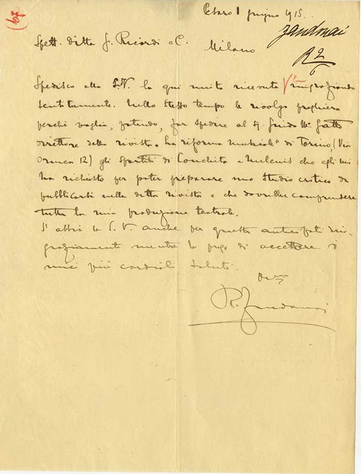 Pesaro 1 giugno 1915.
Zandonai
R 2/6
Spett. ditta G. Ricordi e C. Milano
Spedisco alla S.V. la qui unita ricevuta ringraziando
sentitamente. Nello stesso tempo le rivolgo preghiera
perché voglia, potendo, far spedire al Sig. Guido M. Gatti
direttore della rivista "La riforma musicale" di Torino (Via
Ormea 12) gli spartiti di Conchita e Melenis che egli mi
ha richiesto per poter preparare uno studio critico da
pubblicarsi nella detta rivista e che dovrebbe comprendere
tutta la mia produzione teatrale.
S'abbia la S.V. anche per questo anticipati rin-
graziamenti mentre la prego di accettare i
miei più cordiali saluti.
Dev.mo
R. Zandonai